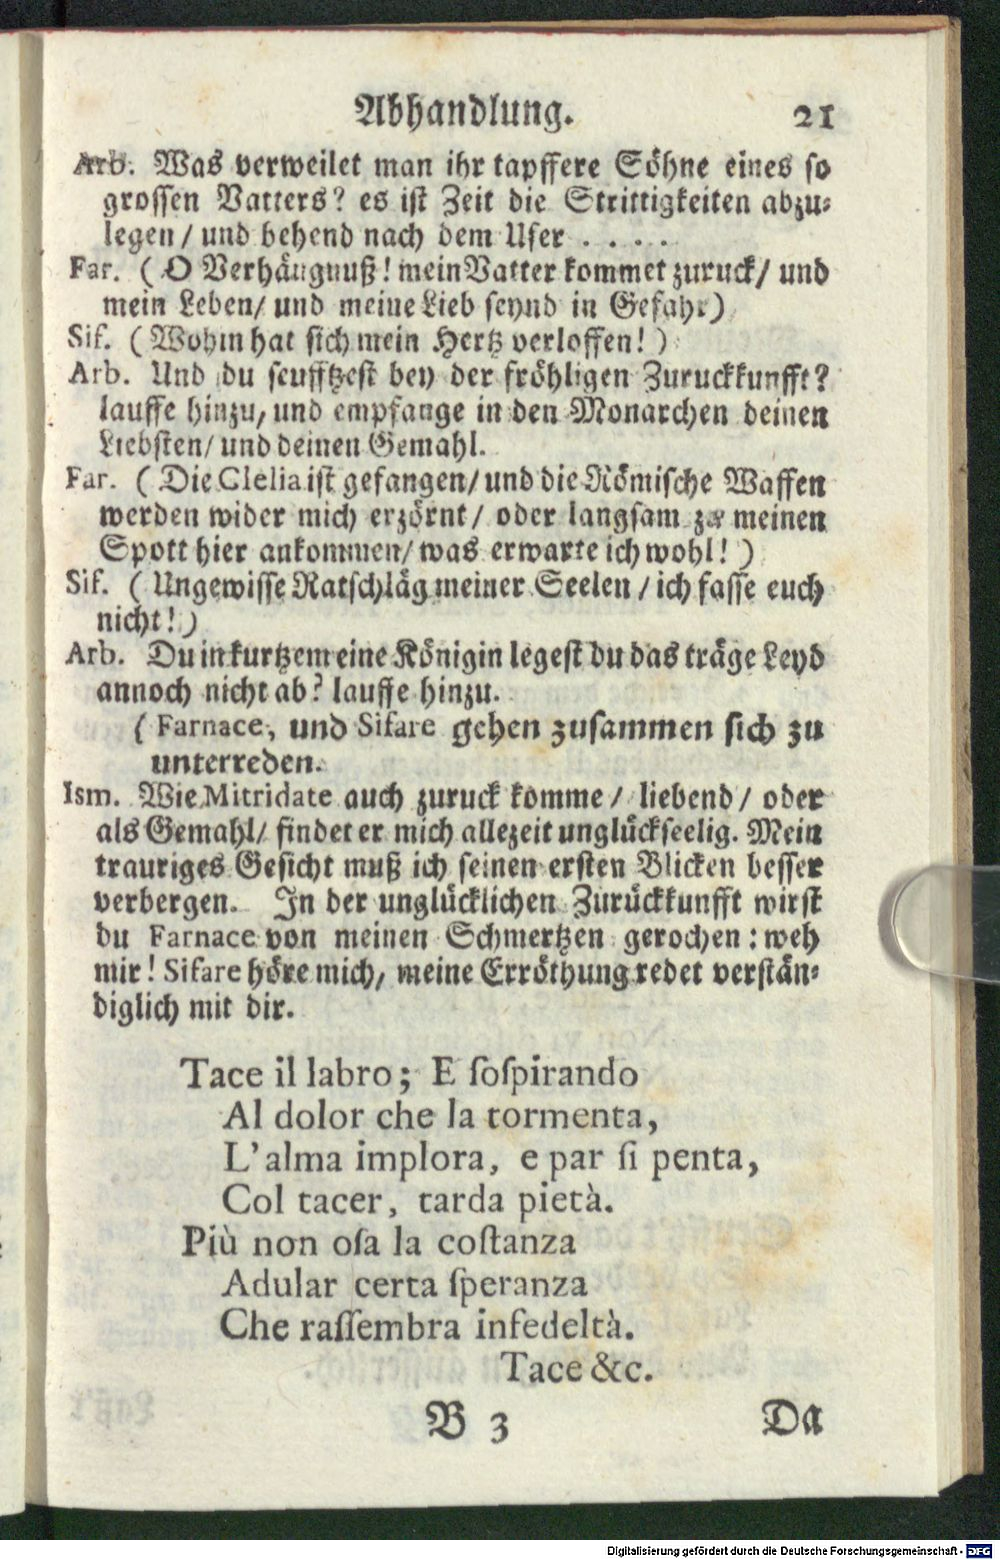 Abhandlung. 21
Arb. Was verweilet man ihr tapffere Söhne eines so
grossen Vatters? es ist Zeit die Strittigkeiten abzu-
legen / und behend nach dem Ufer . . . .
Far. ( O Verhängnuß! mein Vatter kommet zuruck / und
mein Leben / und meine Lieb seynd in Gefahr )
Sif. ( Wohin hat sich mein Hertz verloffen! )
Arb. Und du seufftzest bey der fröhligen Zuruckkunfft?
lauffe hinzu, und empfange in den Monarchen deinen
Liebsten / und deinen Gemahl.
Far. ( Die Clelia ist gefangen / und die Römische Waffen
werden wider mich erzörnt / oder langsam zu meinen
Spott hier ankommen / was erwarte ich wohl! )
Sif. ( Ungewisse Ratschläg meiner Seelen / ich fasse euch
nicht! )
Arb. Du in kurtzem eine Königin legest du das träge Leyd
annoch nicht ab? lauffe hinzu.
( Farnace, und Sifare gehen zusammen sich zu
unterreden.
Ism. Wie Mitridate auch zuruck komme / liebend / oder
als Gemahl / findet er mich allezeit unglückseelig. Mein
trauriges Gesicht muß ich seinen ersten Blicken besser
verbergen. In der unglücklichen Zurückkunfft wirst
du Farnace von meinen Schmertzen gerochen: weh
mir! Sifare höre mich, meine Erröthung redet verstän-
diglich mit dir.
Tace il labro; E sospirando
Al dolor che la tormenta,
L'alma implora, e par si penta,
Col tacer, tarda pietà.
Più non osa la costanza
Adular certa speranza
Che rassembra infedeltà.
Tace &c.
B 3 Da
Digitalisierung gefördert durch die Deutsche Forschungsgemeinschaft - DFG